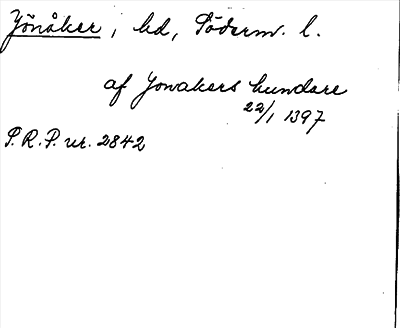 Jönåker, hd, Söderm. l.
af Jonakers hundare
22/1 1397
S.R.P. nr. 2842